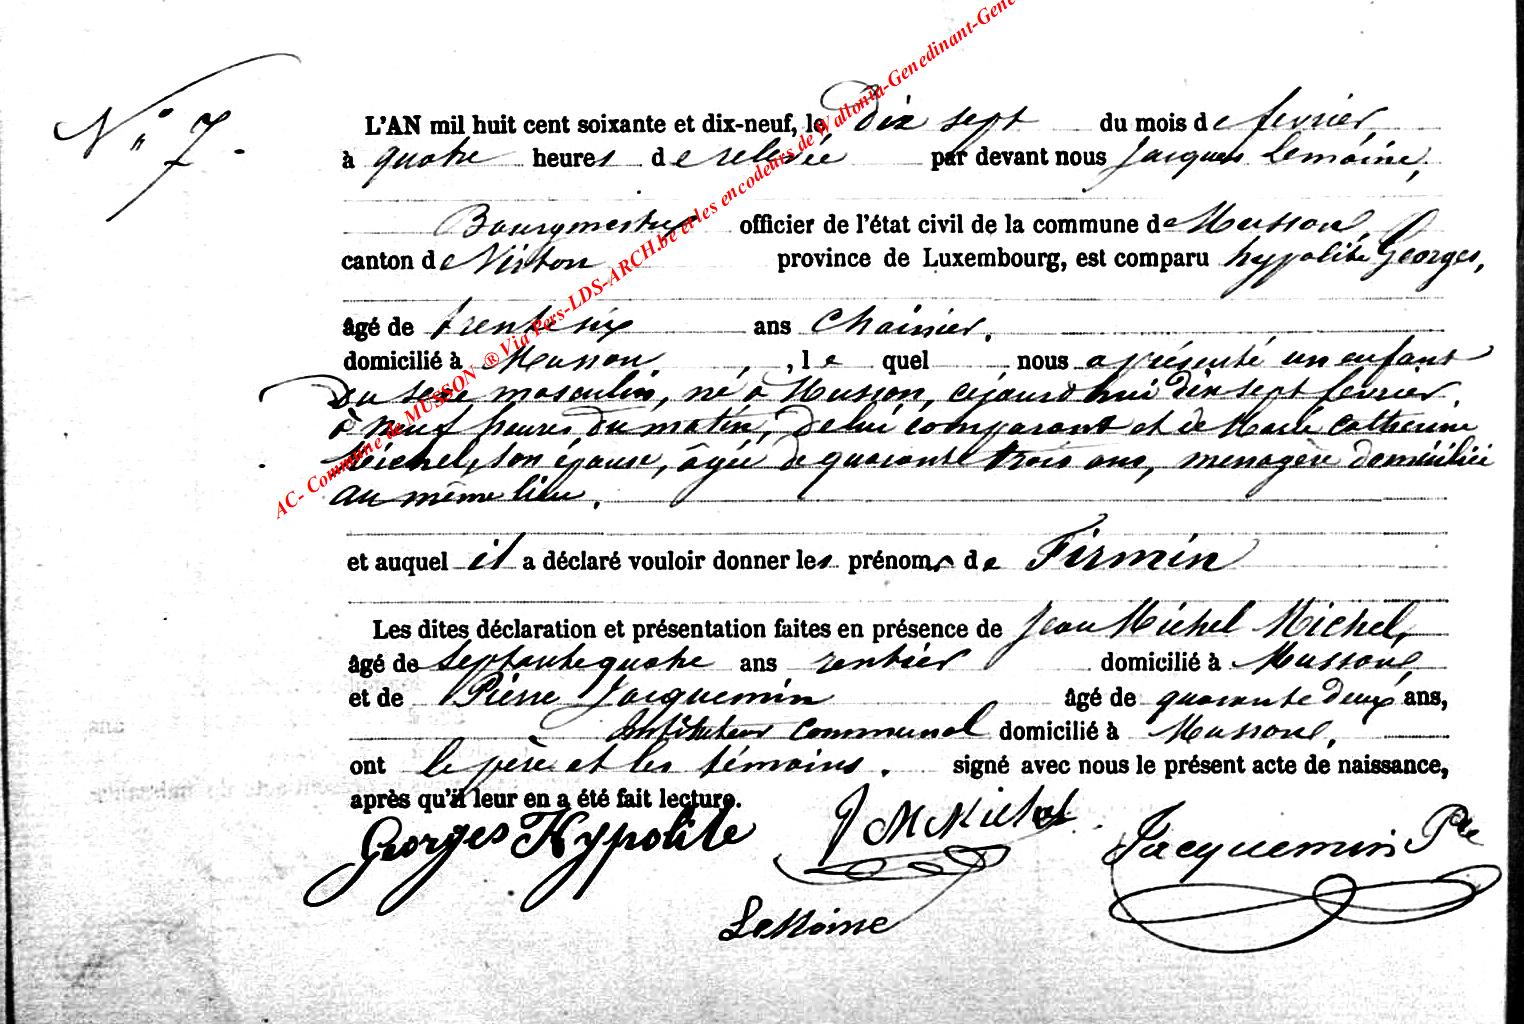 N° 7.
L'AN mil huit cent soixante et dix-neuf, le Dix sept du mois de fevrier,
à quatre heures de relevée par devant nous Jacques Lemoine,
Bourgmestre officier de l'état civil de la commune de Musson,
canton de Virton province de Luxembourg, est comparu hypolite Georges,
âgé de trente six ans
domicilié à Musson, , le quel nous a présenté un enfant
Du sexe masculin, né à Musson, cejourd'hui dix sept fevrier,
à neuf heures du matin, De lui comparant et de Marie Catherine
Michel, son épouse, âgée de quarante trois ans, menagère domiciliée
au même lieu.
et auquel il a déclaré vouloir donner les prénoms de Firmin
Les dites déclaration et présentation faites en présence de Jean Michel Michel,
âgé de septante quatre ans rentier domicilié à Musson,
et de Pierre Jacquemin âgé de quarante Deux ans,
Instituteur communal domicilié à Musson,
ont le père et les témoins. signé avec nous le présent acte de naissance,
après qu'il leur en a été fait lecture.
Georges Hypolite J M Michel Jacquemin Pre
LeMoine
AC- Commune de MUSSON ® Via Pers-LDS-ARCH.be et les encodeurs de Wallonia-Genedinant-Gene